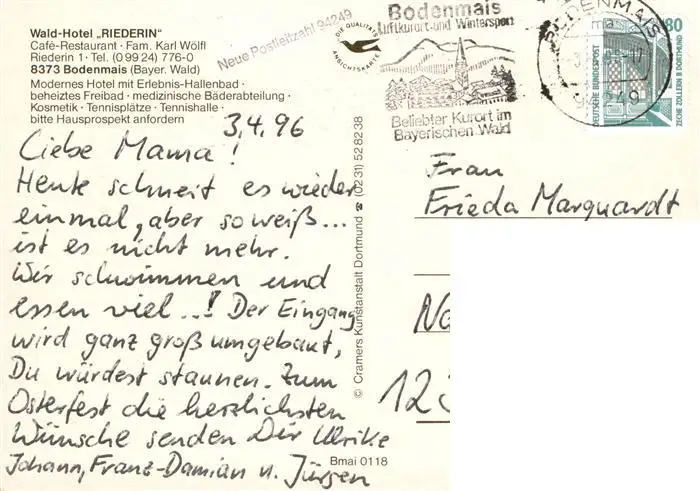 Wald-Hotel „RIEDERIN"
Café-Restaurant · Fam. Karl Wölfl
Riederin 1 · Tel. (0 99 24) 776-0
8373 Bodenmais (Bayer. Wald)
Modernes Hotel mit Erlebnis-Hallenbad ·
beheiztes Freibad · medizinische Bäderabteilung ·
Kosmetik · Tennisplätze · Tennishalle ·
bitte Hausprospekt anfordern
Neue Postleitzahl 94249
DIE QUALITÄTS
ANSICHTSKARTE
3.4.96
Liebe Mama!
Heute schneit es wieder
einmal, aber so weiß...
ist es nicht mehr.
Wir schwimmen und
essen viel...! Der Eingang
wird ganz groß umgebaut,
Du würdest staunen. Zum
Osterfest die herzlichsten
Wünsche senden Dir Ulrike
Johann, Franz-Damian u. Jürgen
Bmai 0118
© Cramers Kunstanstalt Dortmund ☎ (0231) 52 82 38
Bodenmais
Luftkurort und Wintersport
Beliebter Kurort im
Bayerischen Wald
BODENMAIS
ma
94249
80
DEUTSCHE BUNDESPOST
ZECHE ZOLLERN II DORTMUND
Frau
Frieda Marquardt
Na
12